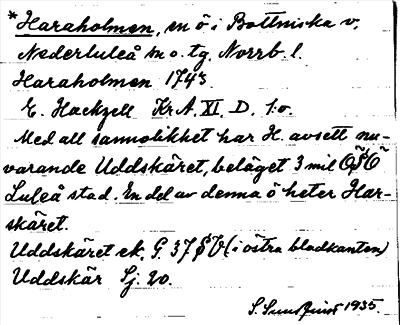 *Haraholmen, en ö i Bottniska v.
Nederluleå sn o. tg. Norrb. l.
Haraholmen 1743
E. Hackzell Kr.A. XI. D. 1:o.
Med all sannolikhet har H. avsett nu-
varande Uddskäret, beläget 3 mil OSO
Luleå stad. En del av denna ö heter Har-
skäret.
Uddskäret ek. G. 37 SV (i östra bladkanten)
Uddskär Sj. 20.
S. 1935.